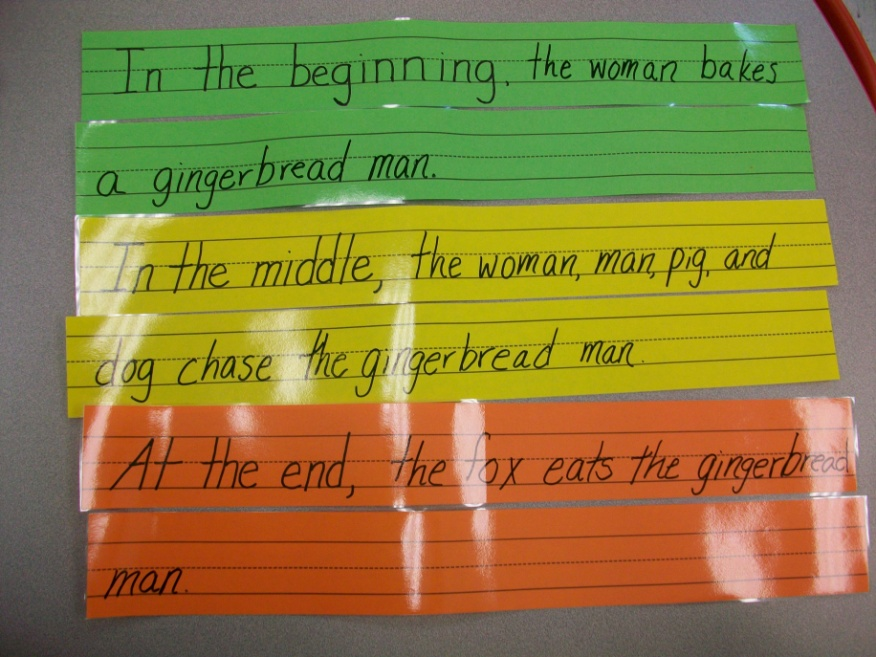 In the beginning, the woman bakes
a gingerbread man.
In the middle, the woman, man, pig, and
dog chase the gingerbread man.
At the end, the fox eats the gingerbread
man.